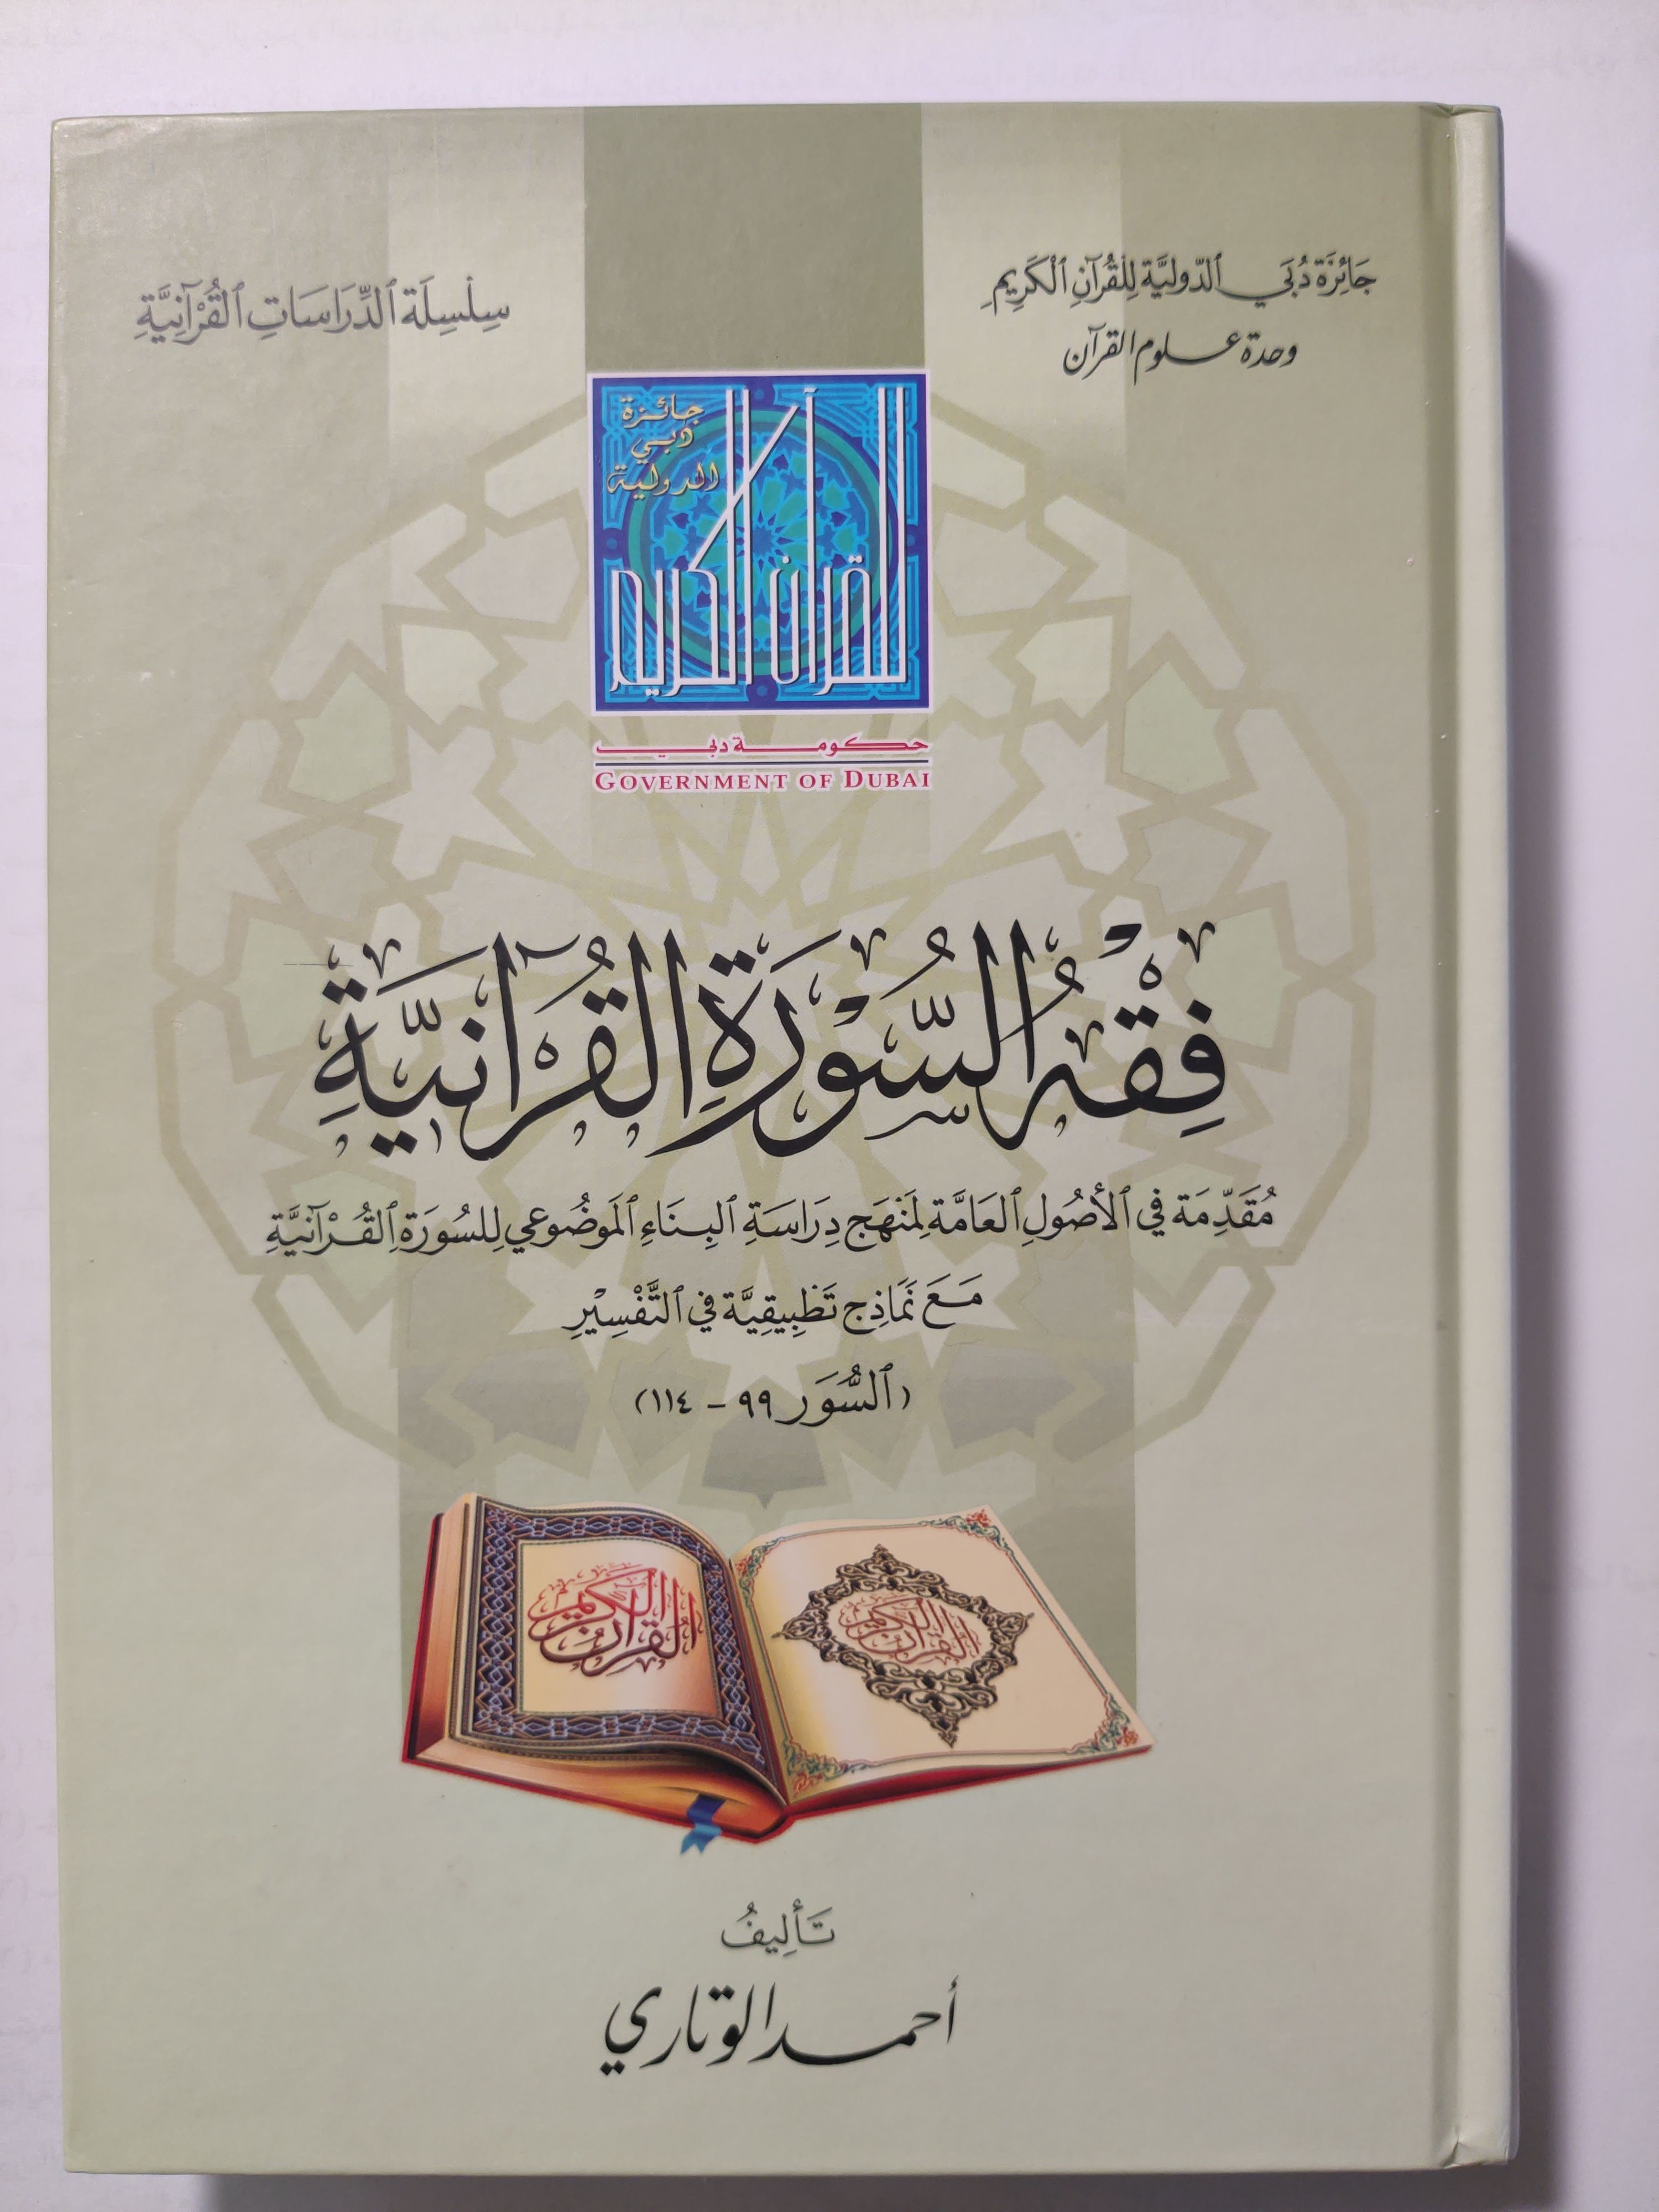 جَائِزَة دُبَي الدّوليَّة لِلْقُرآنِ الْكَرِيمِ
وحدة علوم القرآن
سِلْسِلَة الدِّرَاسَاتِ القُرْآنِيَّةِ
جائزة
دبي
الدولية
للقرآن الكريم
حكومة دبي
GOVERNMENT OF DUBAI
فِقْهُ السُّوْرَةِ القُرْآنيَّةِ
مُقَدِّمَة في الأصُولِ العَامَّة لِمَنْهَج دِرَاسَةِ البِنَاءِ المَوضُوعي لِلسُورَةِ القُرْآنيَّةِ
مَعَ نَمَاذِج تَطْبِيقِيَّة في التَّفْسِيْرِ
(السُّوَر ٩٩ - ١١٤)
القرآن الكريم
القرآن الكريم
تَأليفُ
أحمد الوتاري